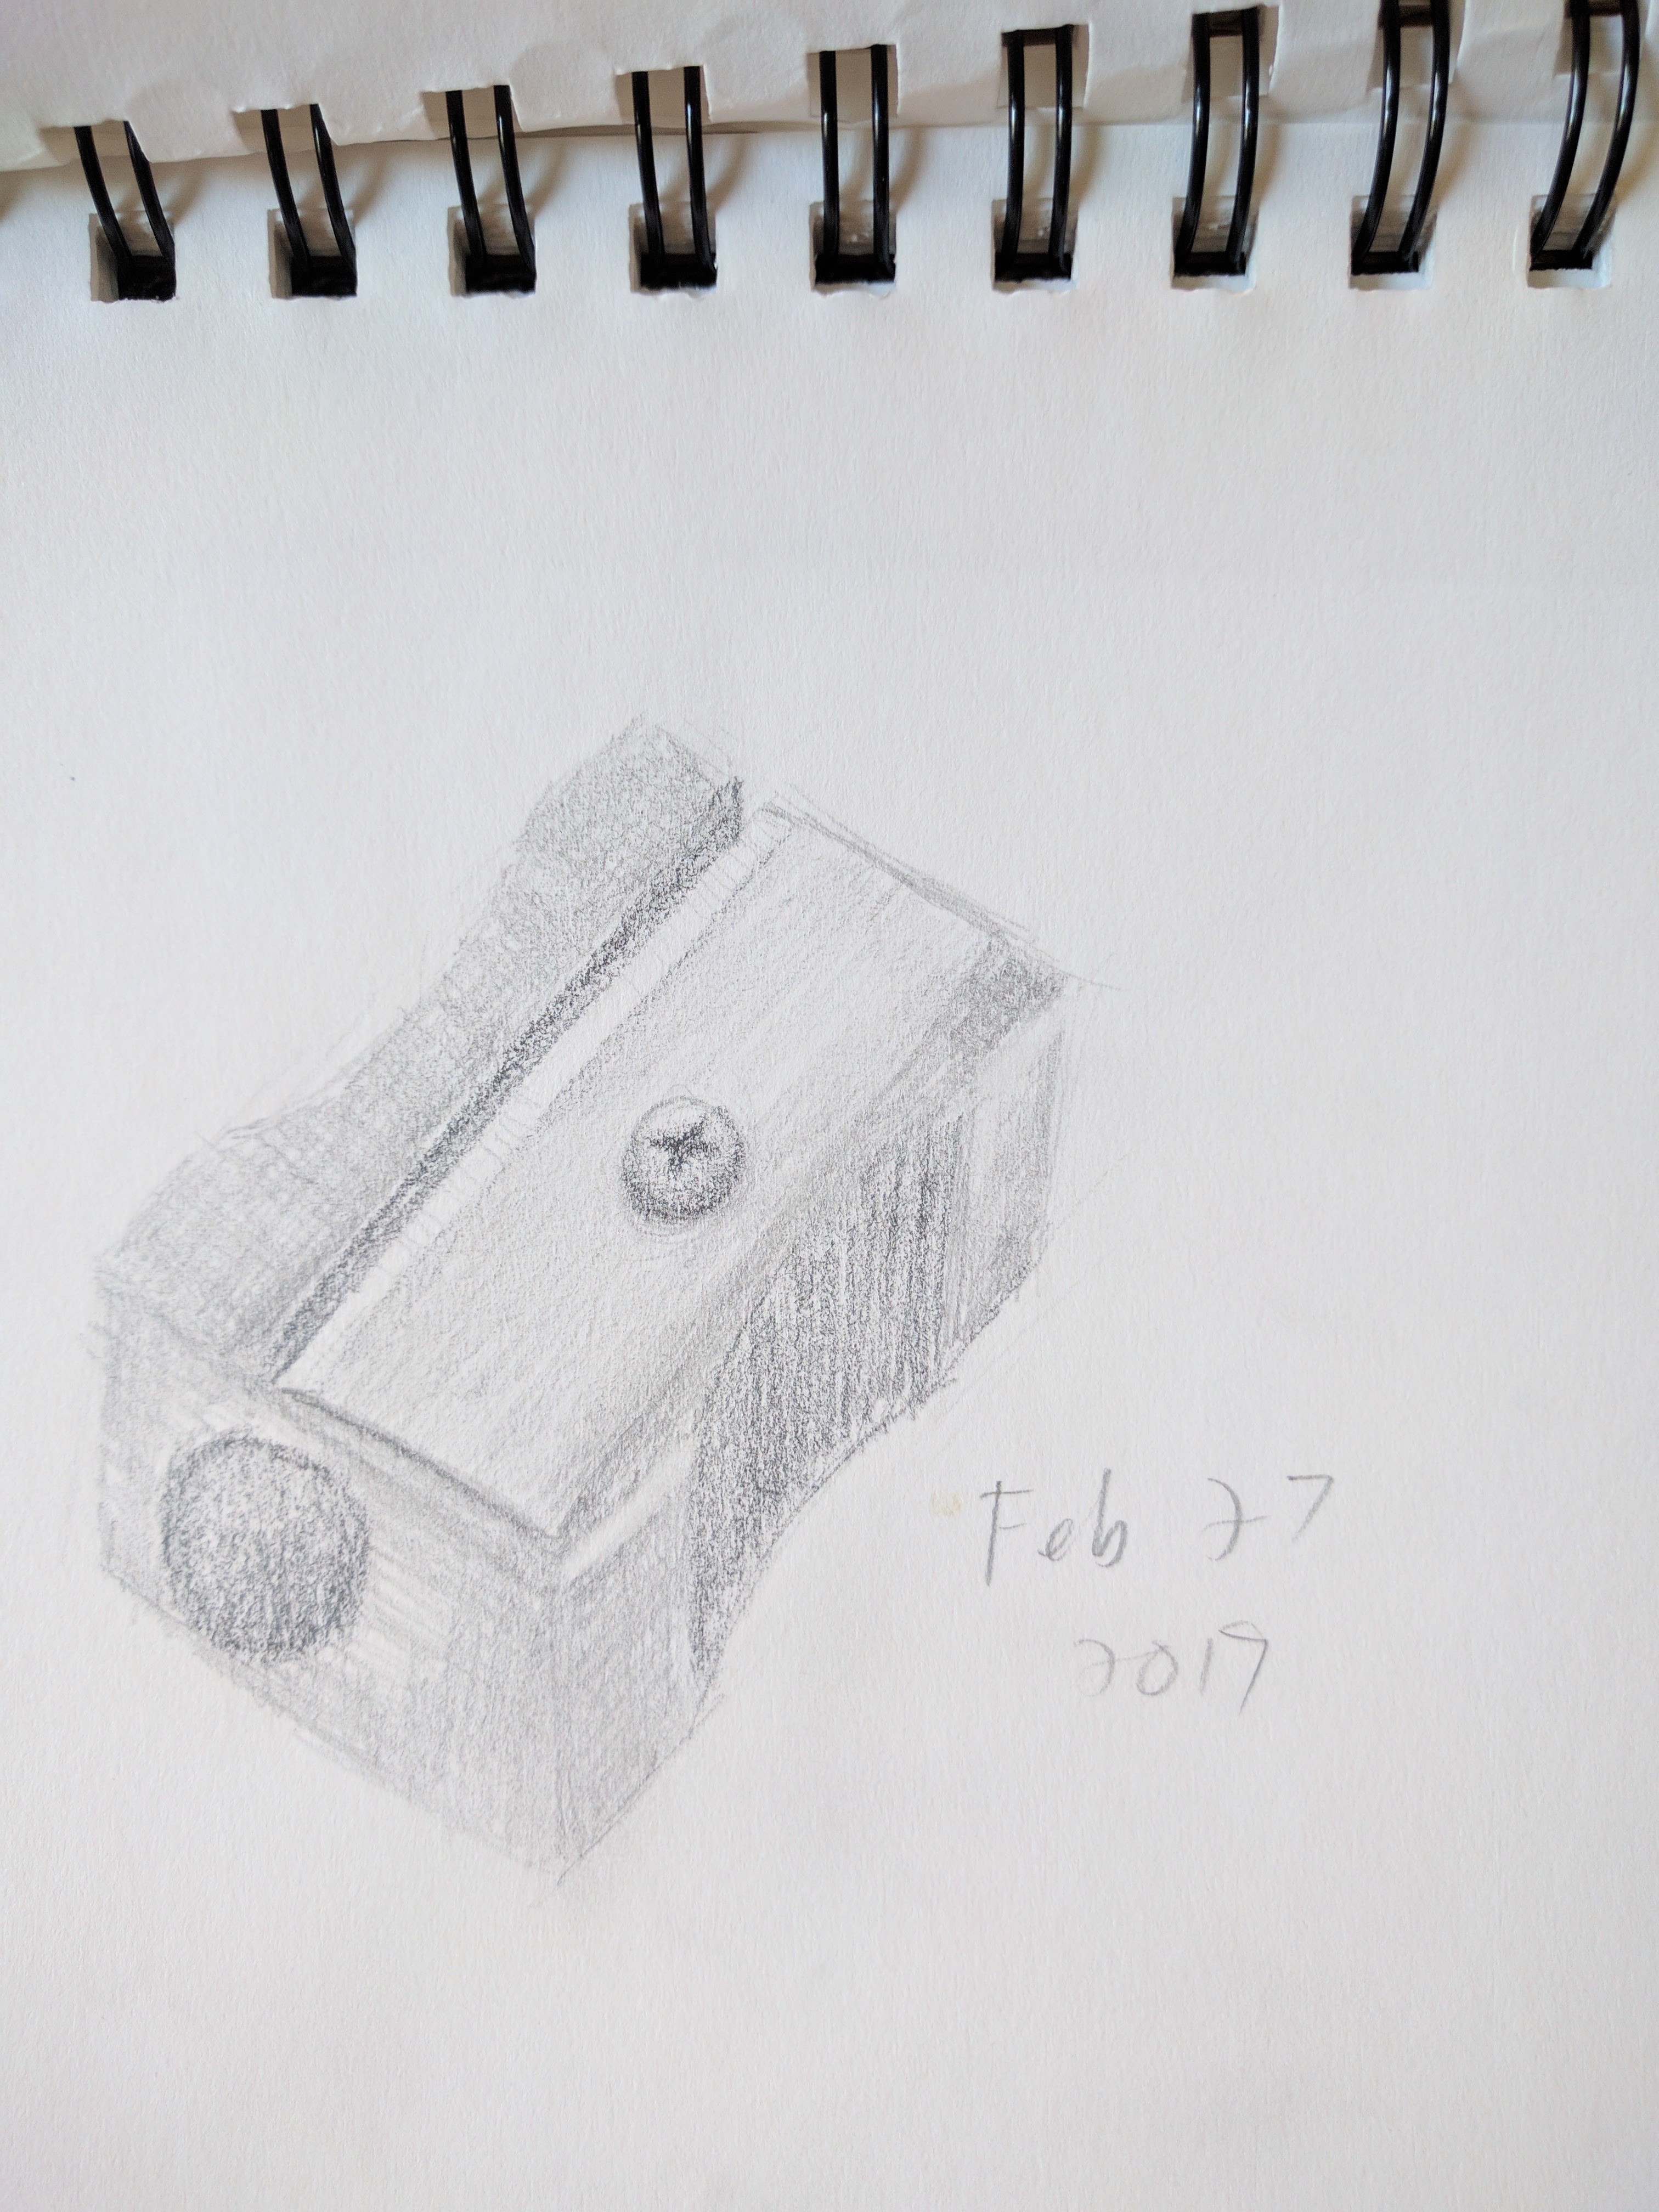 Feb 27
2019